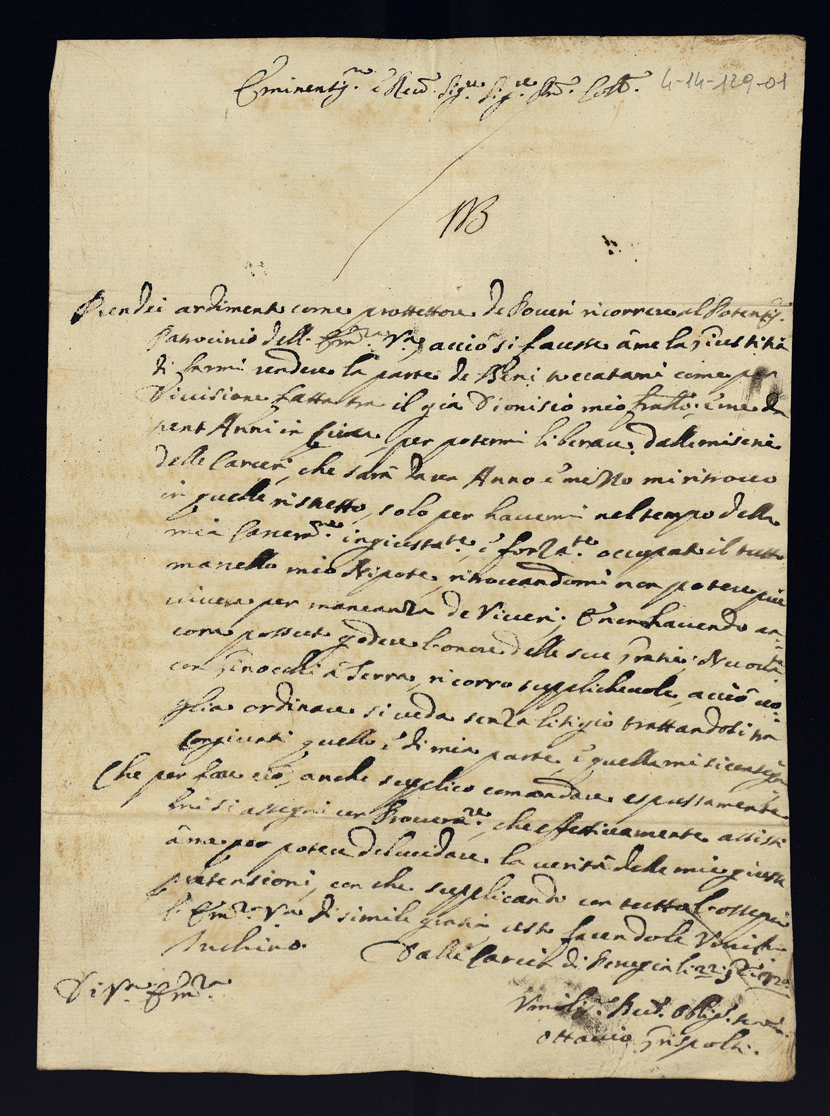 Eminentiss.mo e Rev.mo Sig.re Sig.re Pron. Coll.mo 4-14-129-01
Prendei ardimento come protettore de Poveri ricorrere al Potentiss.
Patrocinio dell. Em.za V.ra acciò si faccste âme la Giustitia
di farmi rendere la parte de Beni toccatami come per
Divisione fatta tra il già Dionisio mio fratello, e me da
vent Anni in circa, per potermi liberare dalle miserie
delle Carceri, che sarà da un Anno e mezzo mi ritrovo
in quelle ristretto, solo per havermi nel tempo della
mia Carcer.ne ingiustate.te, e forza.te occupato il tutto
Marcello mio Nipote, ritrovandomi non potere più
vivere per mancanza de Viveri; E non havendo an-
cora possuto godere l'onore delle sue Gratie,
con Ginocchi à Terra, ricorro supplichevole, acciò vo-
glia ordinare si veda senza litigio trattandosi tra
Congiunti quello è di mia parte, e quella mi si consegni
Che per fare ciò, anche supplico comandare espressamente
mi si assegni un Procura.re, che effettivamente assisti
âme por potere delucidare la verità delle mie giuste
pretensioni, con che supplicando con tutto l'ossequio
l'Em.za V.ra di simile grazia resto facendole Umiliss.
Inchino. Dalle Carceri di Perugia li 22
Di V.ra Em.za
Umilis. Dev. Oblig. ser.
Ottavio Grispolti.